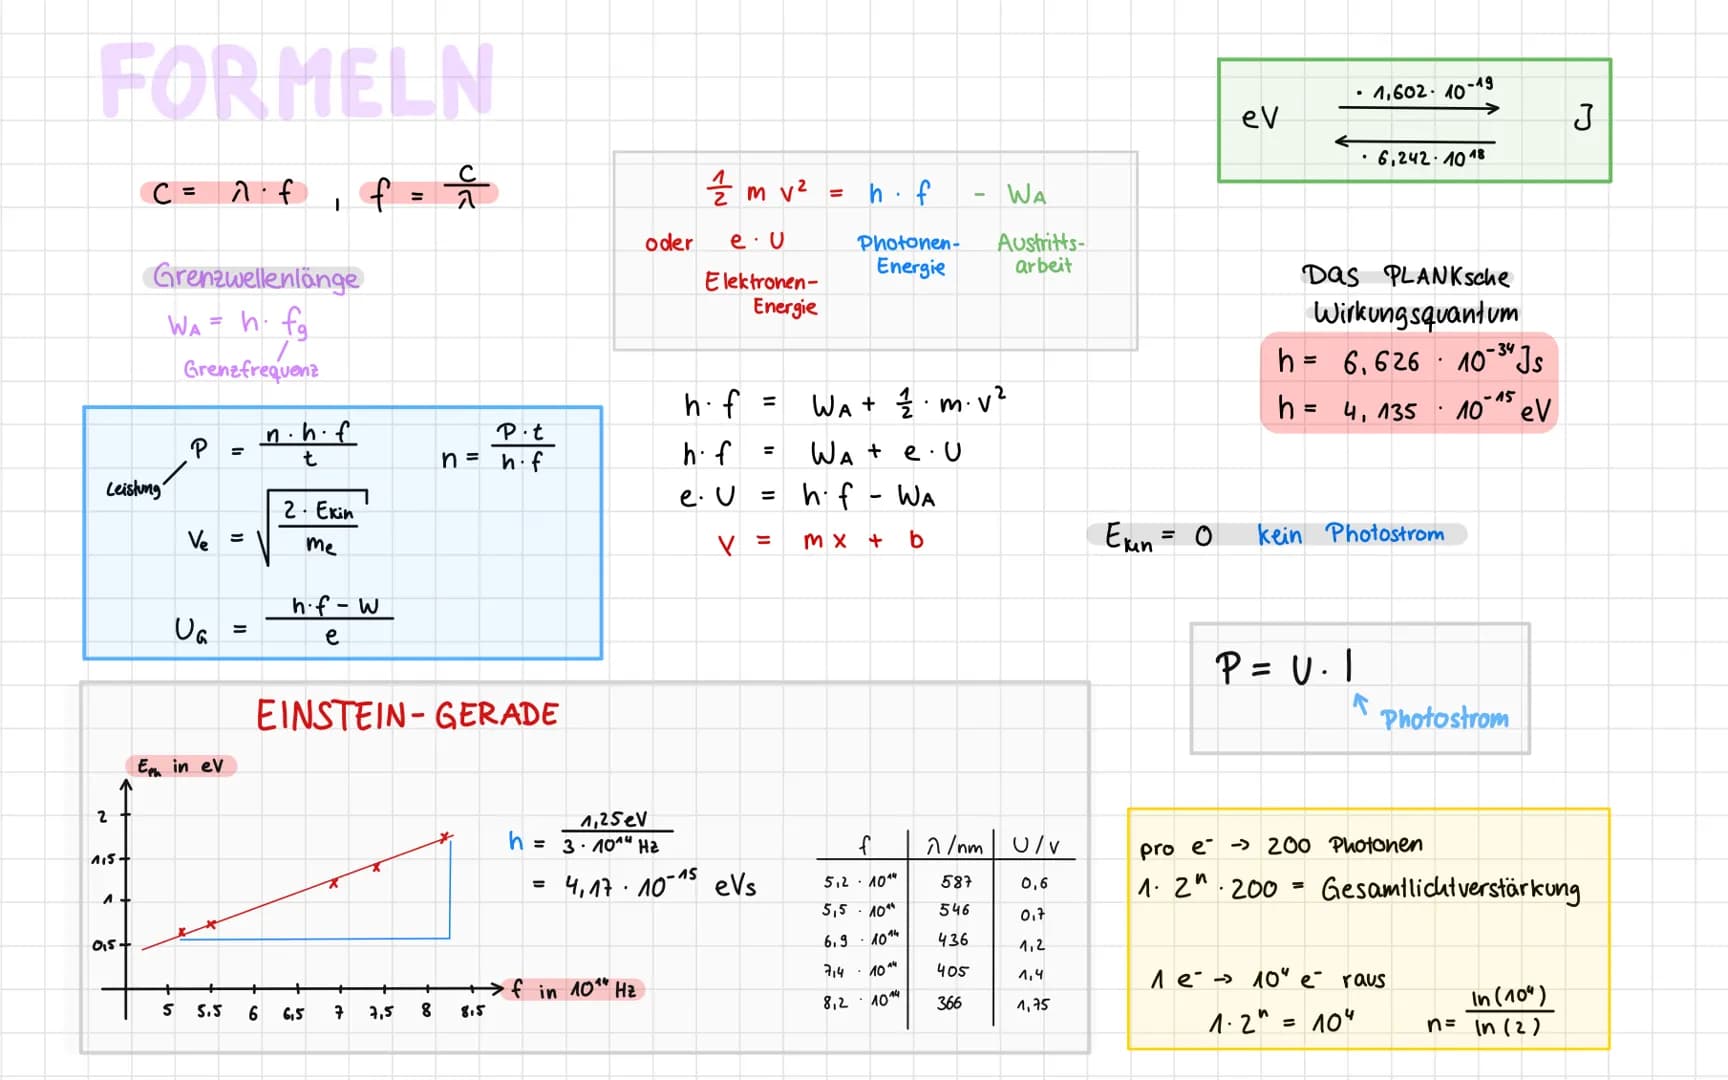 FORMELN
c = λ · f , f = c/λ
Grenzwellenlänge
W_A = h · f_g
Grenzfrequenz
P = n · h · f / t
n = P · t / h · f
Leistung
V_e = √(2 · E_kin / m_e)
U_G = h · f - W / e
½ m v² = h · f - W_A
oder e · U
Elektronen-
Energie
Photonen-
Energie
Austritts-
arbeit
h · f = W_A + ½ · m · v²
h · f = W_A + e · U
e · U = h · f - W_A
y = mx + b
eV · 1,602 · 10⁻¹⁹ J
· 6,242 · 10¹⁸
Das PLANKsche
Wirkungsquantum
h = 6,626 · 10⁻³⁴ Js
h = 4,135 · 10⁻¹⁵ eV
E_kin = 0 kein Photostrom
P = U · I
Photostrom
EINSTEIN-GERADE
in eV
2
1,5
1
0,5
5 5.5 6 6,5 7 7,5 8 8.5
f in 10¹⁴ Hz
h = 1,25eV / 3 · 10¹⁴ Hz
= 4,17 · 10⁻¹⁵ eVs
f λ/nm U/V
5,2 · 10¹⁴ 587 0,6
5,5 · 10¹⁴ 546 0,7
6,9 · 10¹⁴ 436 1,2
7,4 · 10¹⁴ 405 1,4
8,2 · 10¹⁴ 366 1,75
pro e⁻ → 200 Photonen
1 · 2ⁿ · 200 = Gesamtlichtverstärkung
1 e⁻ → 10⁴ e⁻ raus
1 · 2ⁿ = 10⁴
n = ln(10⁴) / ln(2)